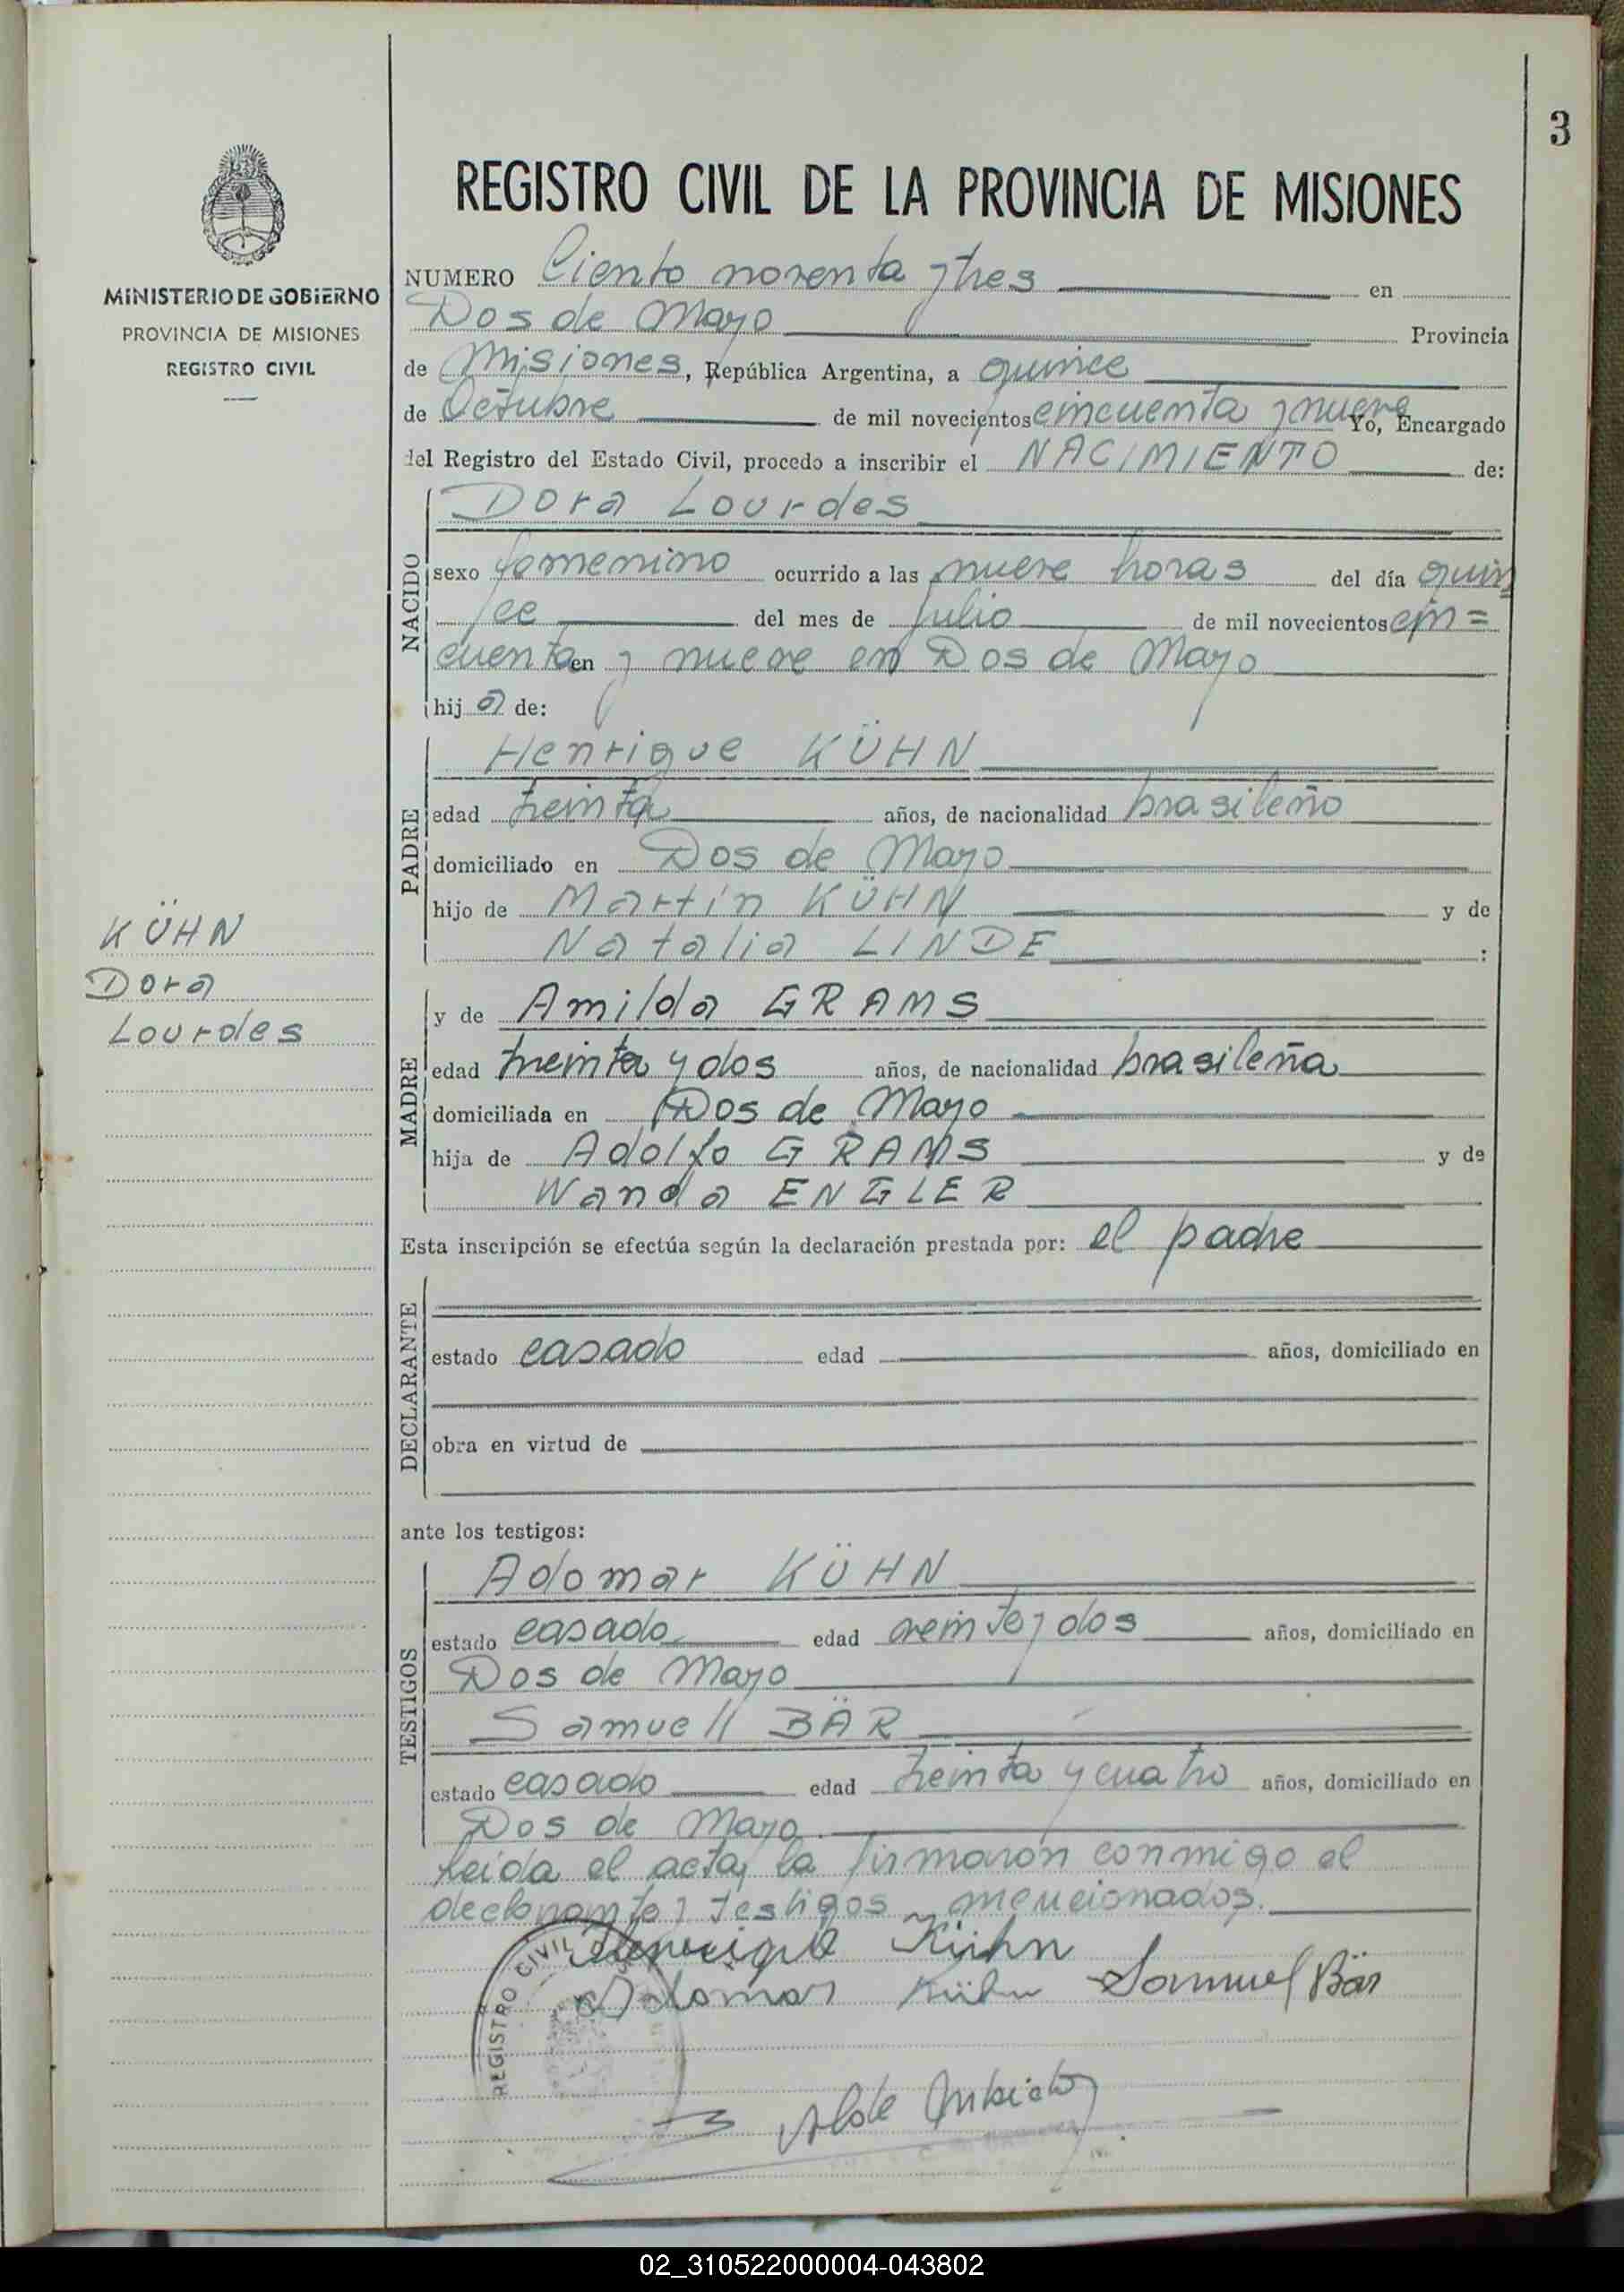 3
REGISTRO CIVIL DE LA PROVINCIA DE MISIONES
MINISTERIO DE GOBIERNO
PROVINCIA DE MISIONES
REGISTRO CIVIL
NUMERO Ciento noventa y tres en
Dos de Mayo Provincia
de Misiones, República Argentina, a quince
de Octubre de mil novecientos cincuenta y nueve Yo, Encargado
del Registro del Estado Civil, procedo a inscribir el NACIMIENTO de:
NACIDO
Dora Lourdes
sexo femenino ocurrido a las nueve horas del día quin
ce del mes de julio de mil novecientos cin=
cuenta en y nueve en Dos de Mayo
hij a de:
PADRE
Henrique KÜHN
edad treinta años, de nacionalidad brasileño
domiciliado en Dos de Mayo
hijo de Martín KÜHN y de
Natalia LINDE :
KÜHN
Dora
Lourdes
MADRE
y de Amilda GRAMS
edad treinta y dos años, de nacionalidad brasileña
domiciliada en Dos de Mayo
hija de Adolfo GRAMS y de
Wanda ENGLER
Esta inscripción se efectúa según la declaración prestada por: el padre
DECLARANTE
estado casado edad años, domiciliado en
obra en virtud de
ante los testigos:
TESTIGOS
Adomar KÜHN
estado casado edad veinte y dos años, domiciliado en
Dos de Mayo
Samuell BÄR
estado casado edad treinta y cuatro años, domiciliado en
Dos de Mayo
Leida el acta, la firmaron conmigo el
declarante y testigos mencionados.
Henrique Kühn
Adomar Kühn Samuel Bär
REGISTRO CIVIL
02_310522000004-043802